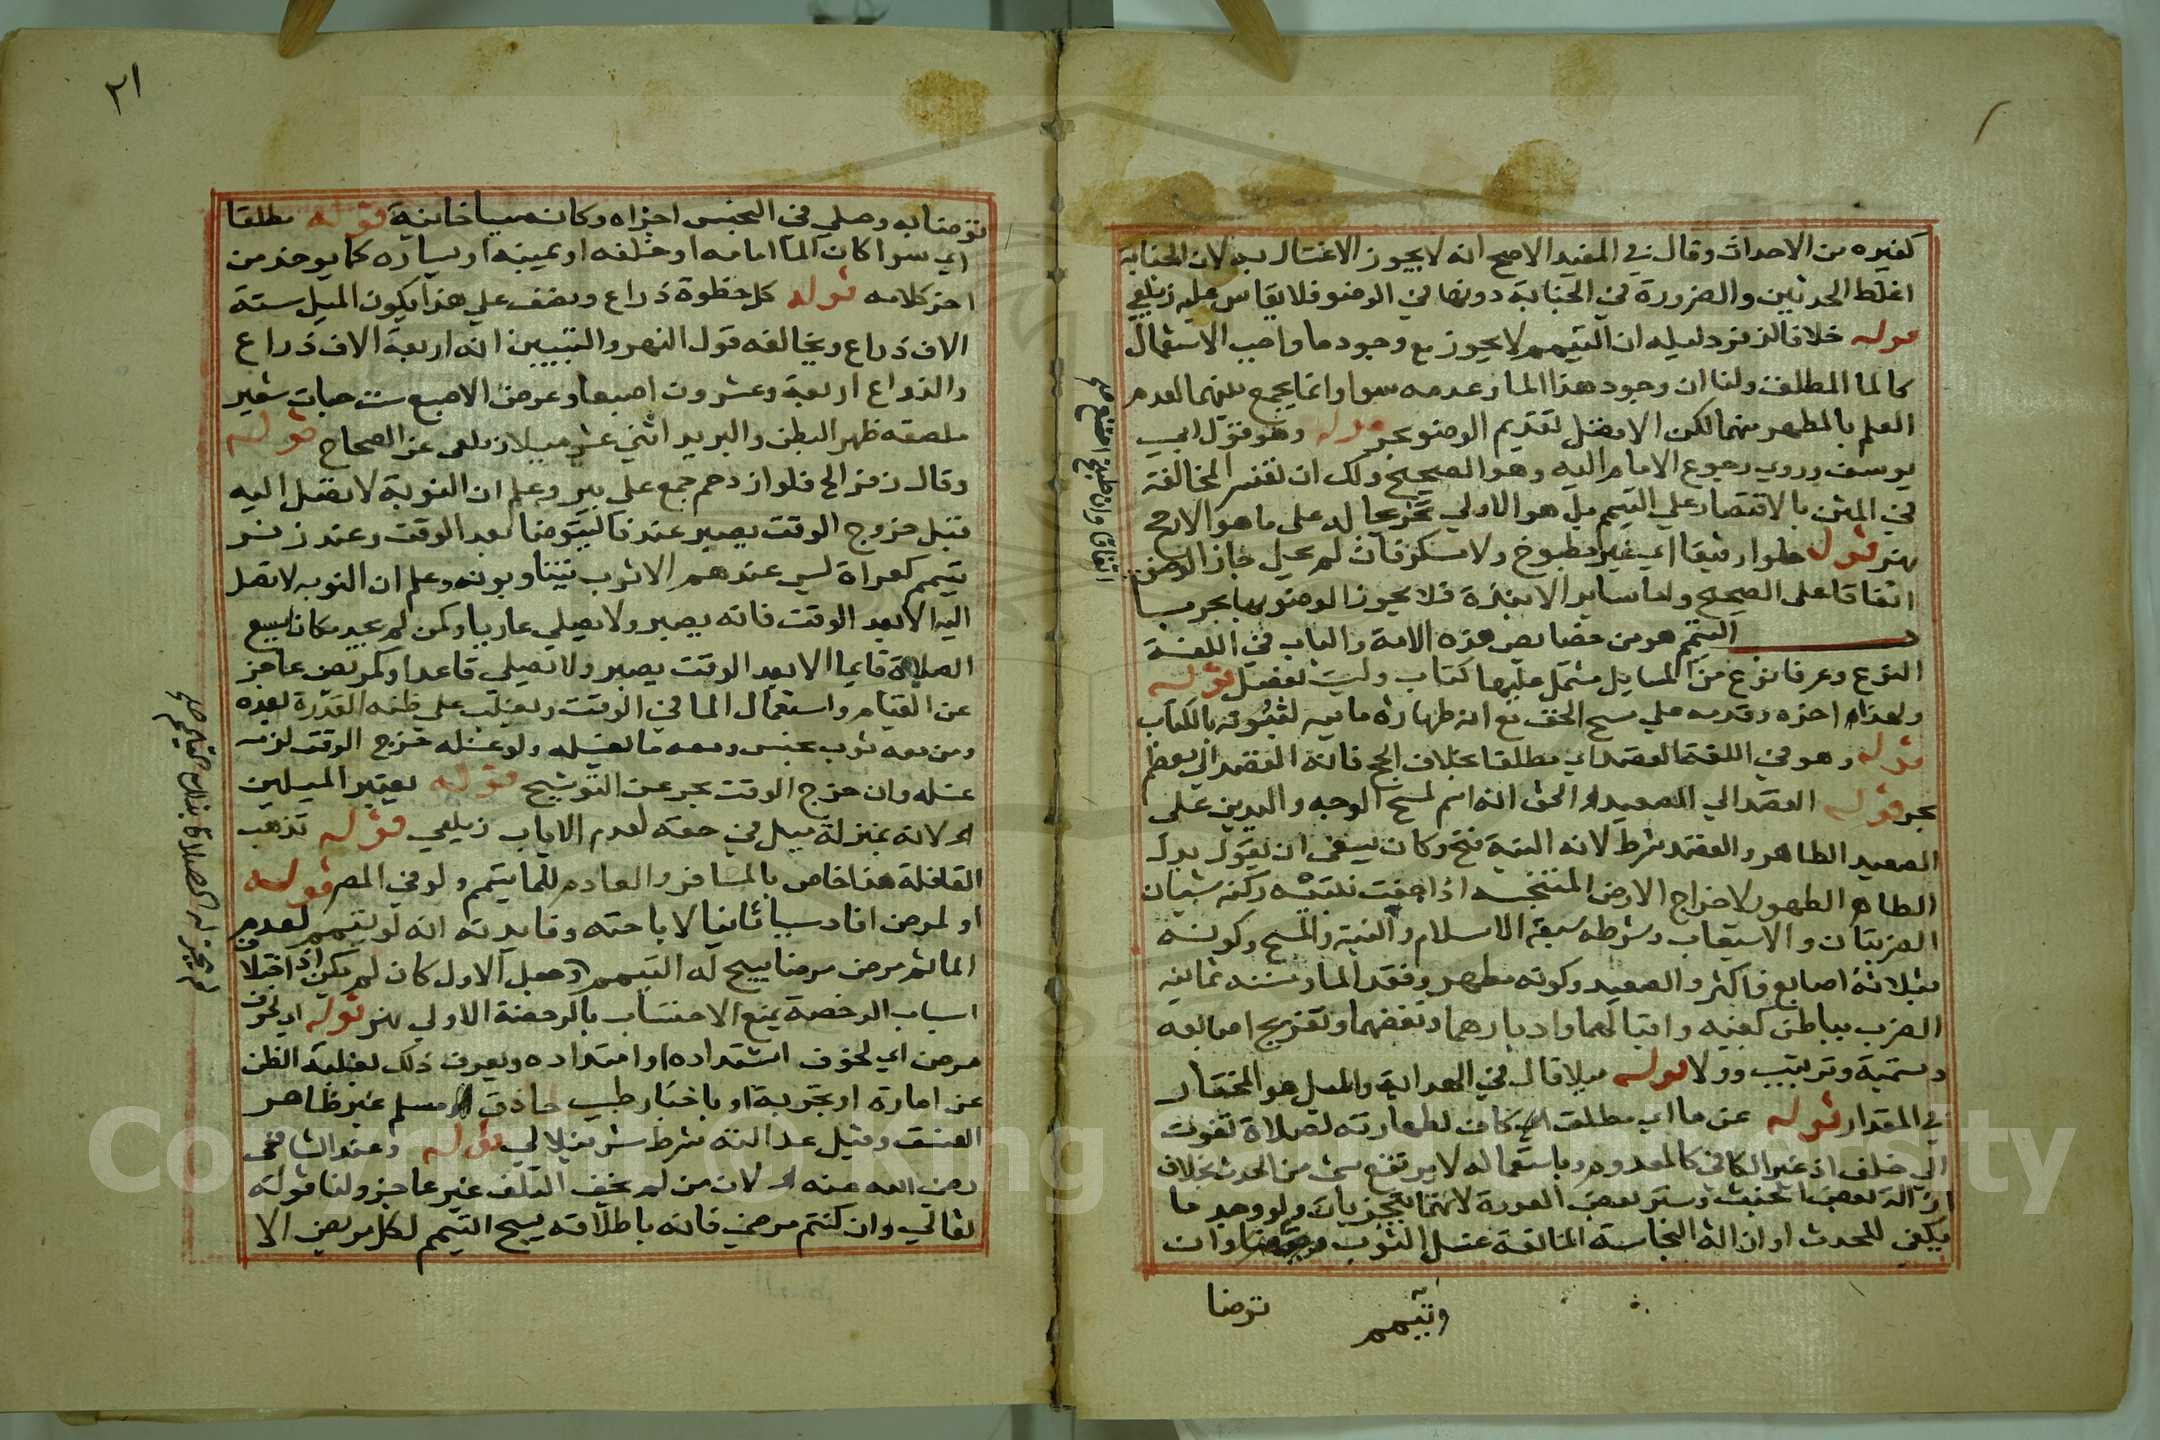 كغيره من الاحداث وقال في المفيد الاصح انه لا يجوز الاغتسال به لان الجنابة
اغلظ الحدثين والضرورة في الجنابة دونها في الوضو فلا يقاس عليه زيلعي
قوله خلافا لزفر دليله ان التيمم لا يجوز مع وجود ما واجب الاستعمال
كالما المطلق ولنا ان وجود هذا الما وعدمه سوا وانما يجمع بينهما لعدم
العلم بالمطهر منهما لكن الافضل تقديم الوضو بحر قوله وهو قول ابي
يوسف وروي رجوع الامام اليه وهو الصحيح ولك ان تفسر المخالفة
في المتن بالاقتصار على التيمم بل هو الاولي تخريجا له على ما هو الارجح
نهر قوله حلوا رقيقا اي غير مطبوخ ولا مسكر فان لم يحل جاز الوضو
اتفاقا على الصحيح واما ساير الانبذة فلا يجوز الوضو بها بحر
التيمم هو من خصايص هذه الامة والباب في اللغة
النوع وعرفا نوع من المسايل مشتمل عليها كتاب وليست بفصل قوله
ولهذا اخره وقدمه علي مسح الخف مع انه طهارة مائية لثبوته بالكتاب
قوله وهو في اللغة القصد اي مطلقا بخلاف الحج فانه القصد الي معظم
بحر قوله القصد الي الصعيد الحق انه اسم لمسح الوجه واليدين على
الصعيد الطاهر والقصد شرط لانه النية فتح وكان ينبغي ان يقول بدل
الطاهر الطهور لاخراج الارض المتنجسة اذا جفت ركنه شيئان
الضربتان والاستيعاب وشرطه ستة الاسلام والنية والمسح وكونه
بثلاثة اصابع فاكثر والصعيد وكونه مطهرا وفقد الما وسننه ثمانية
الضرب بباطن كفيه واقبالهما وادبارهما ونفضهما وتفريج اصابعه
وتسمية وترتيب وولا قوله ميلا قال في الهداية والميل هو المختار
في المقدار قوله عن ما اي مطلق كاف لطهارته لصلاة تفوت
الي خلف اذ غير الكافي كالمعدوم وباستعماله لا يرتفع شي من الحدث بخلاف
ازالة بعض الخبث وستر بعض العورة لانهما يتجزيان ولو وجد ما
يكفي للحدث او ازالة النجاسة المانعة غسل الثوب وان
وتيمم
توضا
اتفاقا وان طبخ
٢١
توضا به وصلي في النجس اجزاه وكان مسيا خانية قوله مطلقا
اي سوا كان الما امامه او خلفه او يمينه او يساره كما يوخذ من
اخر كلامه قوله كل خطوة ذراع ونصف علي هذا يكون الميل ستة
الاف ذراع ويخالفه قول النهر والتبيين انه اربعة الاف ذراع
والذراع اربعة وعشرون اصبعا وعرض الاصبع ست حبات شعير
ملصقه ظهر البطن والبريد اثني عشر ميلا زيلعي عن الصحاح قوله
وقال زفر الخ فلو ازدحم جمع على بير وعلم ان النوبة لا تصل اليه
قبل خروج الوقت يصبر عندنا ليتوضا بعد الوقت وعند زفر
يتيمم كعراة ليس عندهم الا ثوب يتناوبونه وعلم ان النوبه لا تصل
اليه الا بعد الوقت فانه يصبر ولا يصلي عاريا وكمن لم يجد مكانا يسع
الصلاة قايما الا بعد الوقت يصبر ولا يصلي قاعدا وكمريض عاجز
عن القيام واستعمال الما في الوقت ويغلب علي ظنه القدرة بعده
ومن معه ثوب نجس ومعه ما يغسله ولو غسله خرج الوقت لزمه
غسله وان خرج الوقت بحر عن التوشيح قوله يعتبر الميلين
لانه بمنزلة ميل في حقه لعدم الاياب زيلعي قوله تذهب
القافلة هذا خاص بالمسافر والعادم للما يتيمم ولو في المصر قوله
او لمرض افاد سببا ثانيا لاباحته وفايدته انه لو تيمم لعدم
الما ثم مرض مرضا يبيح له التيمم وجعل الاول كان لم يكن اذ اختلاف
اسباب الرخصة يمنع الاحتساب بالرخصة الاولي نهر قوله او لخوف
مرض اي لخوف اشتداده او امتداده ويعرف ذلك بغلبة الظن
عن امارة او تجربة او باخبار طبيب حاذق مسلم غير ظاهر
الفسق وقيل عدالته شرط شرنبلالي قوله وعند الشافعي
رضي الله عنه لان من لم يخف التلف غير عاجز ولنا قوله
تعالي وان كنتم مرضي فانه باطلاقه يبيح التيمم لكل مريض الا